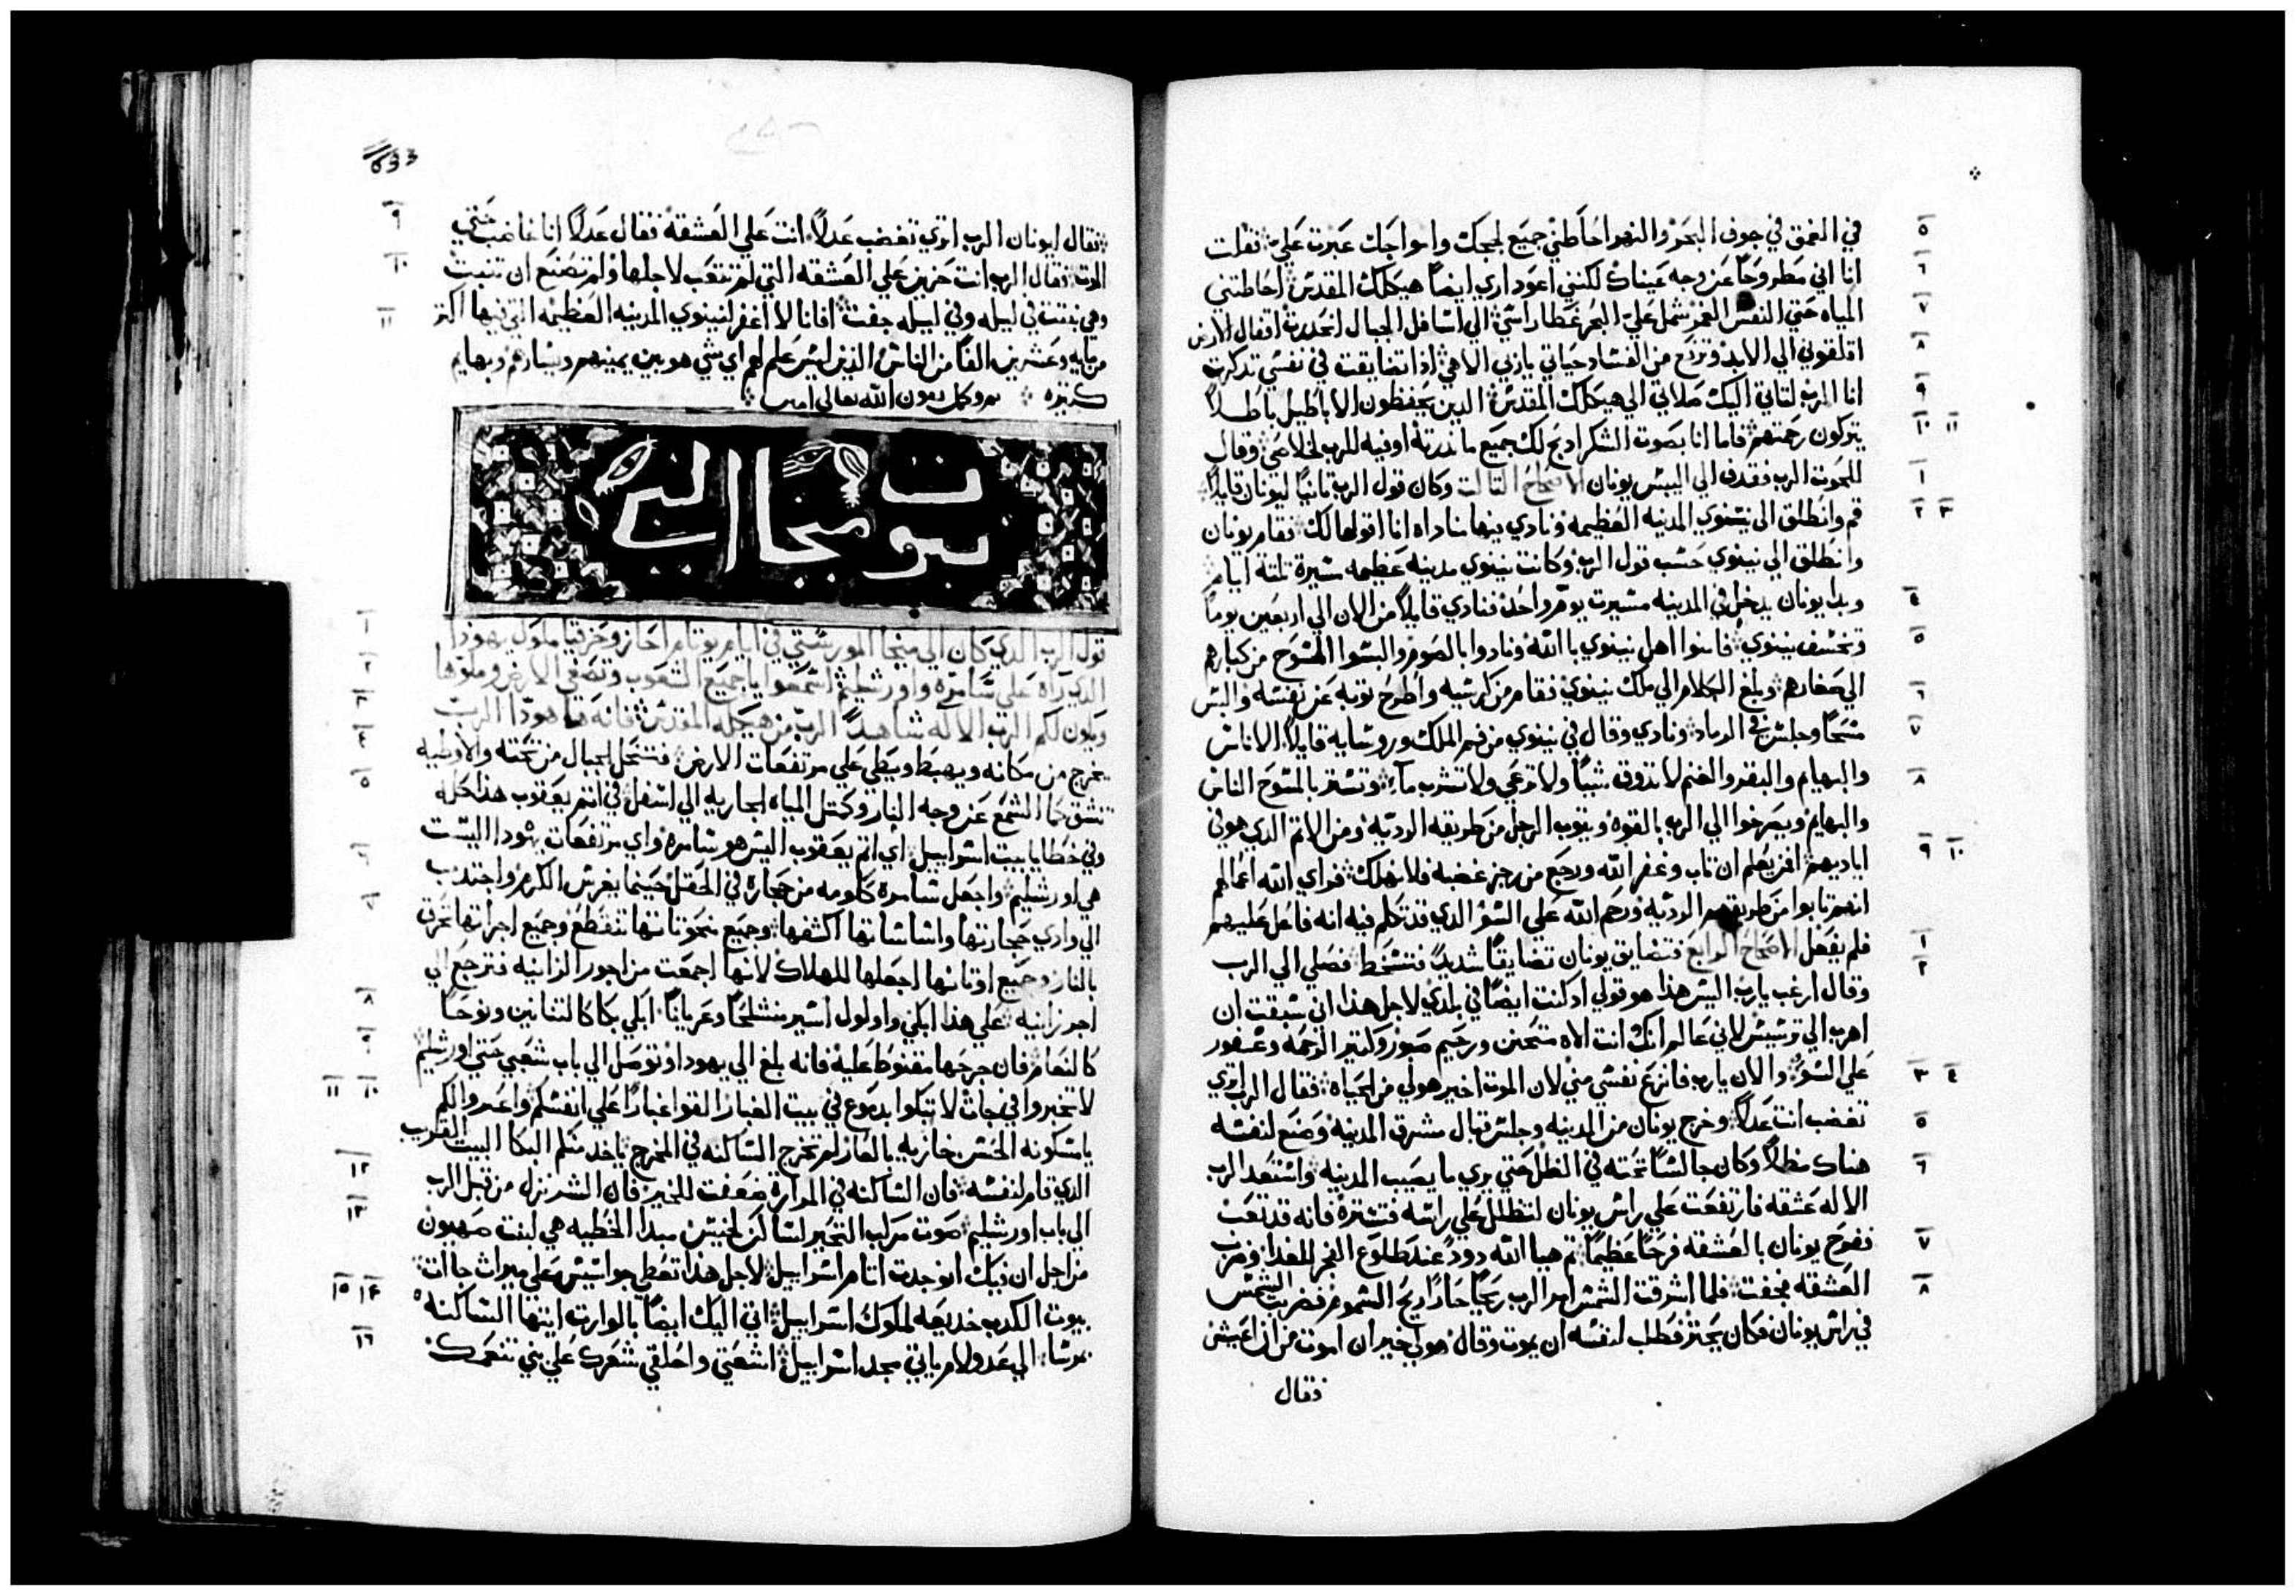 في العمق في جوف البحر والنهر احاطني جميع لججك وامواجك عبرت علي فقلت
انا اني مطروحًا عن وجه عيناك لكنني اعود اري ايضًا هيكلك المقدس احاطتني
المياه حتي النفس الغمر شمل علي البحر غطا راسي الي اسافل الجبال انحدرت اقفال الارض
اقلقوني الي الابد وترتفع من الفساد حياتي يا ربي الاهي اذا تضايقت في نفسي تذكرت
انا الرب لتاتي اليك صلاتي الي هيكلك المقدس الدين يحفظون الاباطيل باطلاً
يتركون رحمتهم فاما انا بصوت الشكر ادبح لك جميع ما ندرته اوفيه للرب لخلاصي وقال
للحوت الرب فقدف الي اليبس يونان الاصحاح التالت وكان قول الرب تانيًا ليونان قايلاً
قم وانطلق الي نينوي المدينه العظيمه ونادي فيها مناداه انا اقولها لك فقام يونان
وانطلق الي نينوي حسب قول الرب وكانت نينوي مدينه عظيمه مسيرة تلتة ايام
وبدا يونان يدخل في المدينه مسيرت يوم واحد فنادي قايلاً من الان الي اربعين يومًا
وتخسف نينوي فامنوا اهل نينوي با الله ونادوا بالصوم والبسوا المسوح من كبارهم
الي صغارهم وبلغ الكلام الي ملك نينوي فقام من كرسيه واطرح توبه عن نفسه والبس
مسحًا وجلس في الرماد ونادي وقال في نينوي من فم الملك وروسايه قايلاً الاناس
والبهايم والبقر والغنم لا تدوق شيًا ولا ترعي ولا تشرب ماء وتستتر بالمسوح الناس
والبهايم ويصرخوا الي الرب بالقوه ويتوب الرجل من طريقه الرديه ومن الاتم الدي هو في
اياديهم افمن يعلم ان تاب وغفر الله ورجع من رجز غضبه فلا نهلك فراي الله اعمالهم
انهم تابوا من طريقهم الرديه ورحم الله علي السوُ الدي قد تكلم فيه انه فاعل عليهم
فلم يفعل الاصحاح الرابع فتضايق يونان تضايقًا شديدً فتسخط فصلي الي الرب
وقال ارغب يا رب اليس هذا هو قولي اد كنت ايضًا في بلدي لاجل هذا اني سبقت ان
اهرب الي ترسيس لاني عالم انك انت الاه متحنن ورحيم صبور وكتير الرحمه وغفور
علي السوُ والان يا رب فانزع نفسي مني لان الموت اخير هو لي من الحياه فقال الرب اتري
تغضب انت عدلاً وخرج يونان من المدينه وجلس قبال مشرق المدينه وصنع لنفسه
هناك مظلاً وكان جالسًا تحته في الظل حتي يري ما يصيب المدينه واستعد الرب
الاله عشقه فارتفعت علي راس يونان لتظلل علي راسه فتستره فانه قد تعب
ففرح يونان بالعشقه فرحًا عظيمًا تم هيا الله دودً عند طلوع الفجر للغدا وضرب
العشقه فجفت فلما اشرقت الشمس امر الرب ريحًا حارًا ريح السموم فضربت الشمس
في راس يونان فكان يحتر فطلب لنفسه ان يموت وقال هو لي خير ان اموت من ان اعيش
فقال
633
فقال ليونان الرب اتري تغضب عدلاً انت علي العشقه فقال عدلاً انا غاضب حتي
الموت فقال الرب انت حزين علي العشقه التي لم تتعب لاجلها ولم تصنع ان تنبت
وهي نبتت في ليله وفي ليله جفت افانا لا اغفر لنينوي المدينه العظيمه التي فيها اكتر
من مايه وعشرين الفًا من الناس الدين ليس علم لهم اي شي هو بين يمينهم ويسارهم وبهايم
كتيره تم وكمل بعون الله تعالي امين
نبوت ميخا النبي
قول الرب الدي كان الي ميخا المورستي في ايام يوتام احاز وحزقيا ملوك يهودا
الدي رآه علي سامره واورشليم اسمعوا يا جميع الشعوب وتصغي الارض وملوها
ويكون لكم الرب الاله شاهدًا الرب من هيكله المقدس فانه ها هودا الرب
يخرج من مكانه ويهبط ويطي علي مرتفعات الارض فتنحل الجبال من تحته والاوديه
تنشق كما الشمع عن وجه النار وكمتل المياه الجاريه الي اسفل في اتم يعقوب هدا كله
وفي خطايا بيت اسراييل اي اتم يعقوب اليس هو سامره واي مرتفعات يهودا اليست
هي اورشليم واجعل سامرة كاومه من حجارة في الحقل حينما يغرس الكرم واجتدب
الي وادي حجارتها واساساتها اكشفها وجميع منحوتاتها تنقطع وجميع اجراتها تحرق
بالنار وجميع اوتانها اجعلها للهلاك لانها اجمعت من اجور الزانيه فترجع الي
اجر زانيه علي هذا ابكي واولول اسير متسلحًا وعريانًا ابكي بكا كالتنانين ونوحًا
كالنعام فان جرحها مقنوط عليه فانه بلغ الي يهودا وتوصل الي باب شعبي حتي اورشليم
لا تخبروا في جات لا تبكوا بدموع في بيت الغبار القوا غبارًا علي انفسكم واعبروا لكم
يا مسكونه الحسن خازيه بالعار لم تخرج الساكنه في المخرج ياخد منكم البكا البيت القرب
الدي قام لنفسه فان الساكنه في المرارة ضعفت للخير فان الشر نزل من قبل الرب
الي باب اورشليم صوت مركب التحير لساكن لخيس مبدا الخطيه هي لبنت صهيون
من اجل ان فيك انوجدت اتام اسراييل لاجل هدا تعطي جواسيس علي ميرات جات
بيوت الكدب خديعه لملوك اسراييل اتي اليك ايضًا بالوارت ايتها الساكنه
مرسا الي عدولام ياتي مجد اسراييل اشعتي واحلقي شعرك علي بني تنعمك